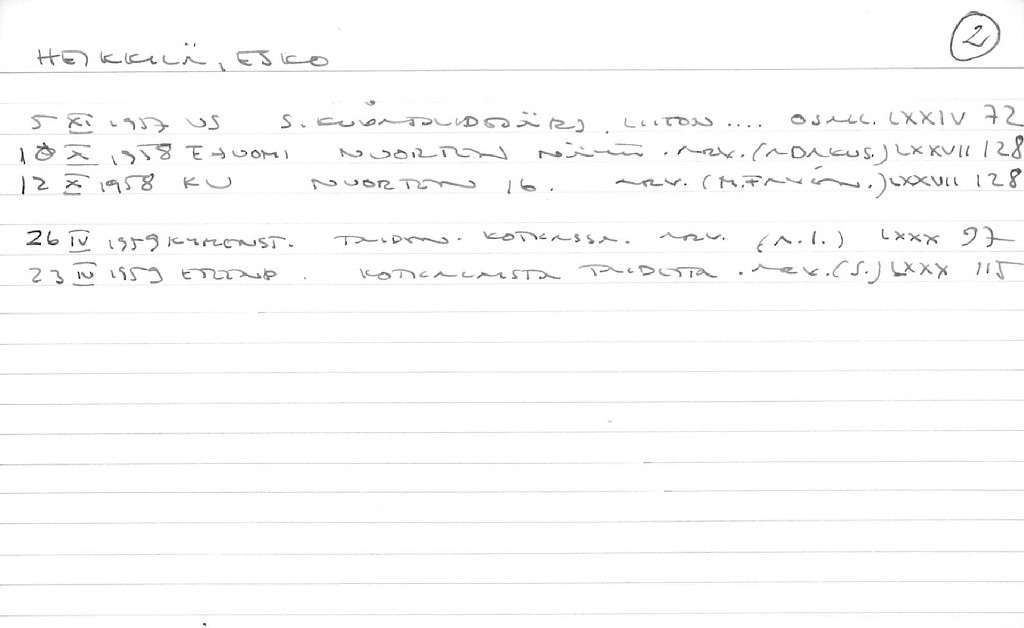 2
HEIKKILÄ, ESKO
5 XI 1957 US S. KUVANTAIDEJÄRJ. LIITON .... OSALL. LXXIV 72
10 X 1958 E SUOMI NUORTEN NÄYTT. ARV. LXXVII 128
12 X 1958 KU NUORTEN 16. ARV. LXXVII 128
26 IV 1959 KYMENST. TAIDEN. KOTKASSA. ARV. (A.I.) LXXX 97
23 IV 1959 ETEENP. KOTKALAISTA TAIDETTA. ARV. (S.) LXXX 115